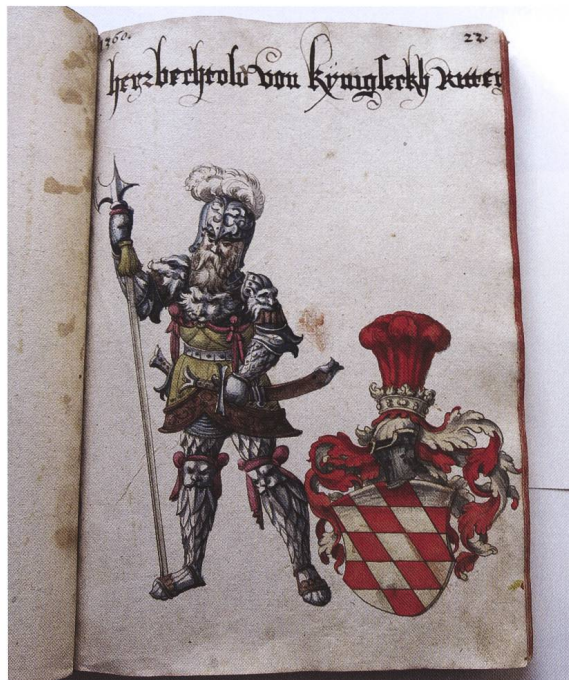 1360. 22.
herr bechtold von kynigseckh Ritter